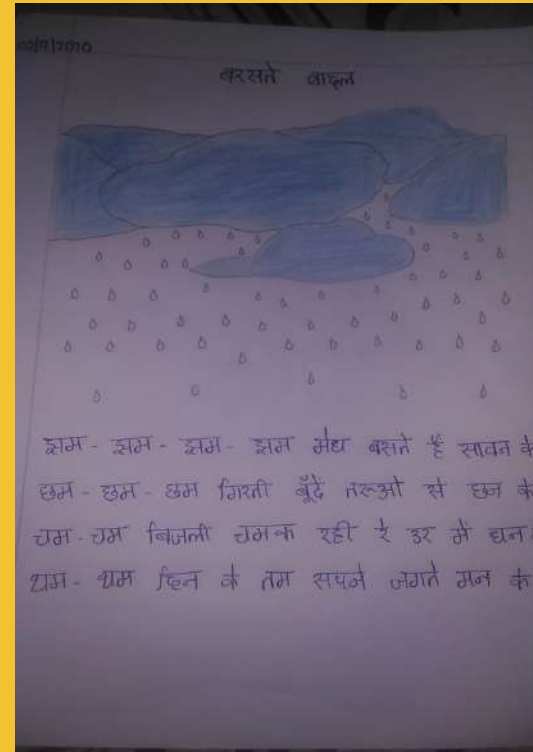 बरसते बादल
झम - झम - झम - झम मेघ बसते हैं सावन के
छम - छम - छम गिरती बूँदे तरूओ से छन के
चम - चम बिजली चमक रही रे उर में घन
थम - थम दिन के तम सपने जगते मन के